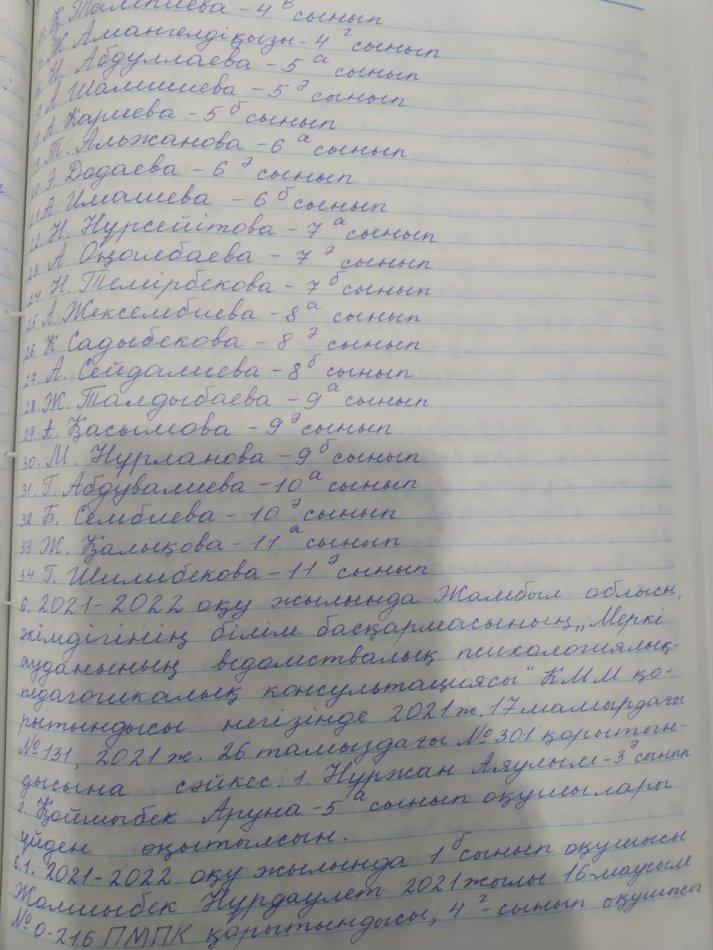 Қ Талипиева - 4 в сынып
Ж. Амангелдіқызы - 4 г сынып
Н. Абдуллаева - 5 а сынып
А Шамшиева - 5 ә сынып
А. Кариева - 5 б сынып
Т. Альжанова - 6 а сынып
Э Додаева - 6 ә сынып
А Имашева - 6 б сынып
22 Н. Нұрсейітова - 7 а сынып
23 А Оңолбаева - 7 ә сынып
24 Н. Темірбекова - 7 б сынып
25 А Жексембиева - 8 а сынып
26 К Садыбекова - 8 ә сынып
27 А. Сейдалиева - 8 б сынып
28 Ж. Талдыбаева - 9 а сынып
29 А. Қасымова - 9 ә сынып.
30. М. Нұрланова - 9 б сынып
31. Г. Абдувалиева - 10 а сынып
32 Б. Сембиева - 10 ә сынып
33 Ж. Қалықова - 11 а сынып
34 Г. Шилибекова - 11 ә сынып
6. 2021-2022 оқу жылында Жамбыл облысы,
әкімдігінің білім басқармасының „Меркі
ауданының ведомствалық психологиялық-
педагогикалық консультациясы" КММ қо-
рытындысы негізінде 2021 ж. 17 мамырдағы
№131, 2021 ж. 26 тамыздағы №301 қорытын-
дысына сәйкес: 1. Нұржан Аяулым - 3 ә сынып
2. Қойшыбек Аруна - 5 а сынып оқушылары
үйден оқытылсын.
6.1. 2021-2022 оқу жылында 1 б сынып оқушысы
Жамшыбек Нұрдаулет 2021 жылы 16-маусым
№0-216 ПМПК қорытындысы, 4 г - сынып оқушысы